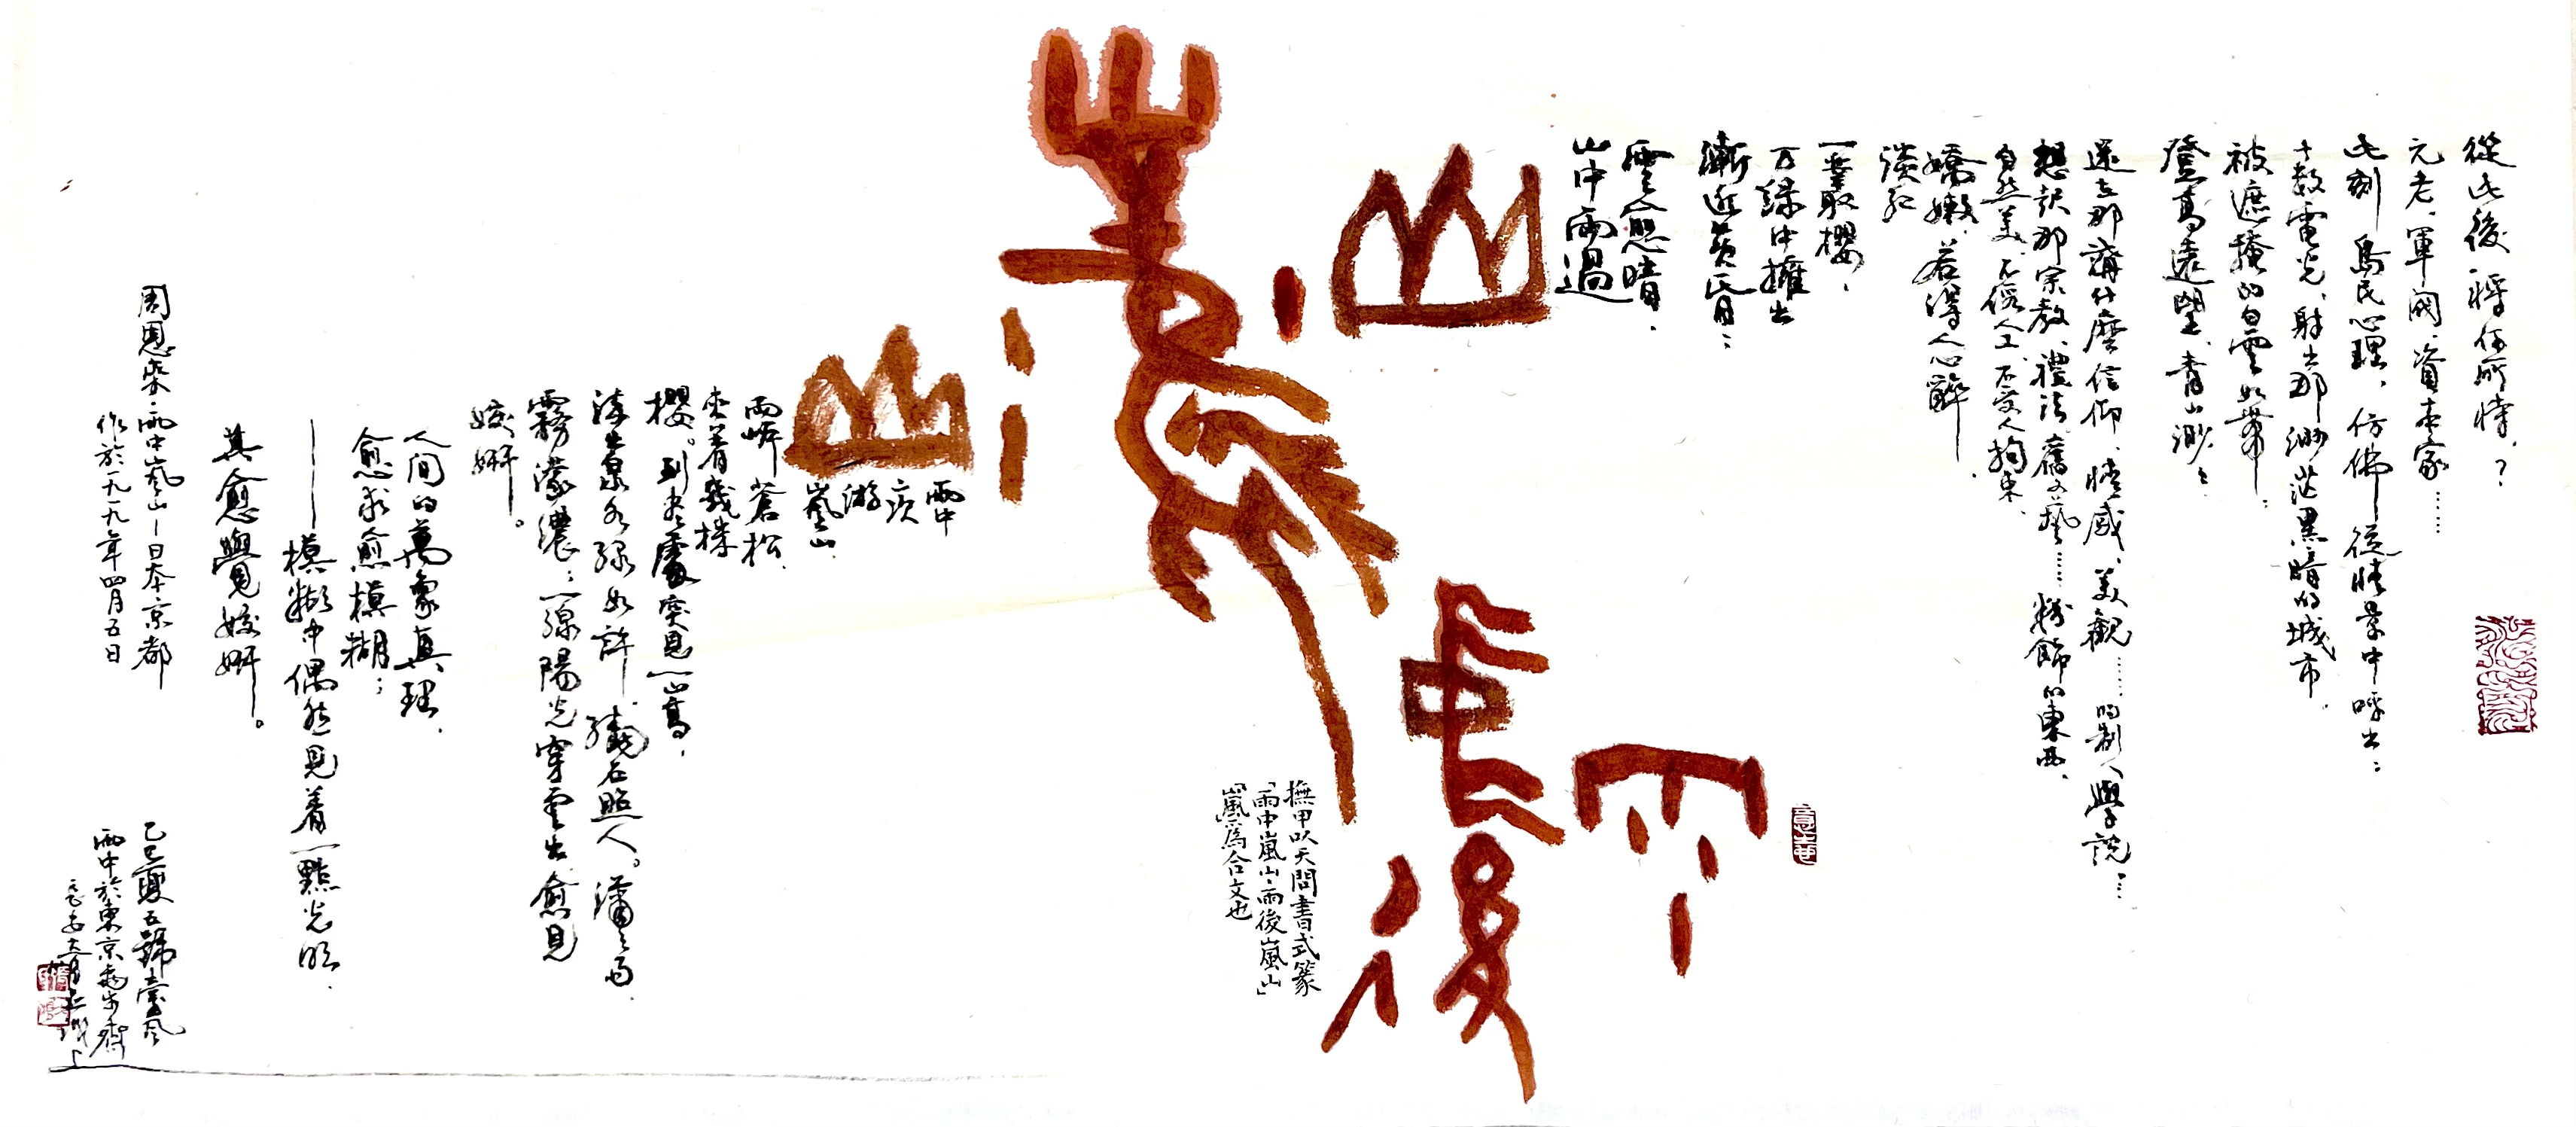 雨
中
後
嵐
山
山
山中雨過
雲愈暗，
漸近黃昏；
万綠中擁出
一叢櫻，
淡紅
嬌嫩，若得人心醉.
自然美、不假人工、不受人拘束.
想起那宗教、禮法、舊文藝……粉飾的東西、
還在那講什麼信仰、情感、美觀……的制人學說…
登高遠望、青山渺渺
被遮掩的白雲如帶；
十數電光、射出那渺茫黑暗的城市.
此刻島民心理、仿佛從情景中呼出；
元老、軍閥、資本家……
從此後將何所恃？
撫甲以天問書式篆
「雨中嵐山·雨後嵐山」
「嵐」為合文也
雨中
二次
游
嵐山
兩岸蒼松、
夾着幾株
櫻。到盡處突見一山高，
流出泉水綠如許、繞石照人。瀟瀟雨、
霧濛濃；一線陽光穿雲出、愈見
姣妍。
人間的萬象真理、
愈求愈模糊；
——模糊中偶然見着一點光明、
真愈覺姣妍。
周恩來·雨中嵐山—日本京都
作於一九一九年四月五日
乙巳夏五號臺風
雨中於東京